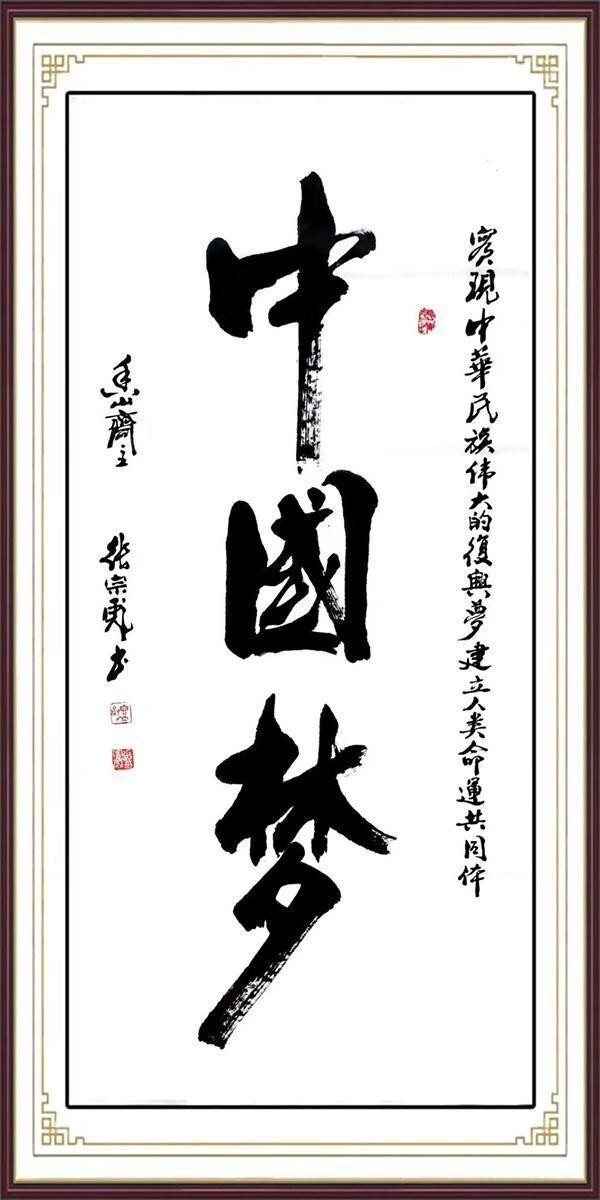 實現中華民族伟大的復興夢建立人类命運共同体
中國梦
香山齋主
張宗彪书